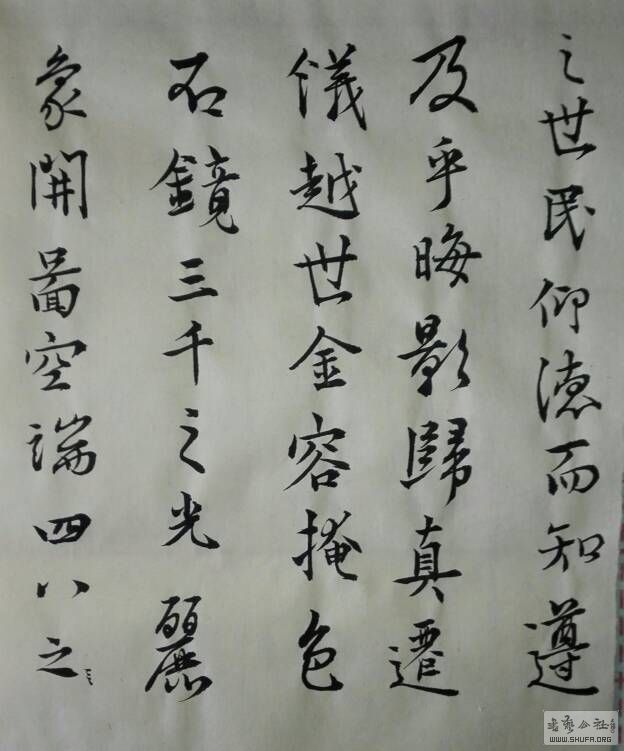 之世民仰德而知遵
及乎晦影歸真遷
儀越世金容掩色
不鏡三千之光麗
象開啚空端四八之
書藝公社
WWW.SHUFA.ORG